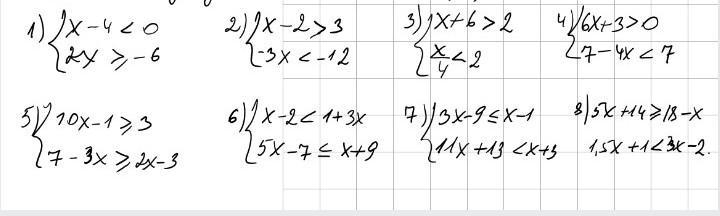 1) { x - 4 < 0
2x ⩾ -6
2) { x - 2 > 3
-3x < -12
3) { x + 6 > 2
x/4 < 2
4) { 6x + 3 > 0
7 - 4x < 7
5) { 10x - 1 ⩾ 3
7 - 3x ⩾ 2x - 3
6) { x - 2 < 1 + 3x
5x - 7 ≤ x + 9
7) { 3x - 9 ≤ x - 1
11x + 13 < x + 3
8) 5x + 14 ⩾ 18 - x
1,5x + 1 < 3x - 2.